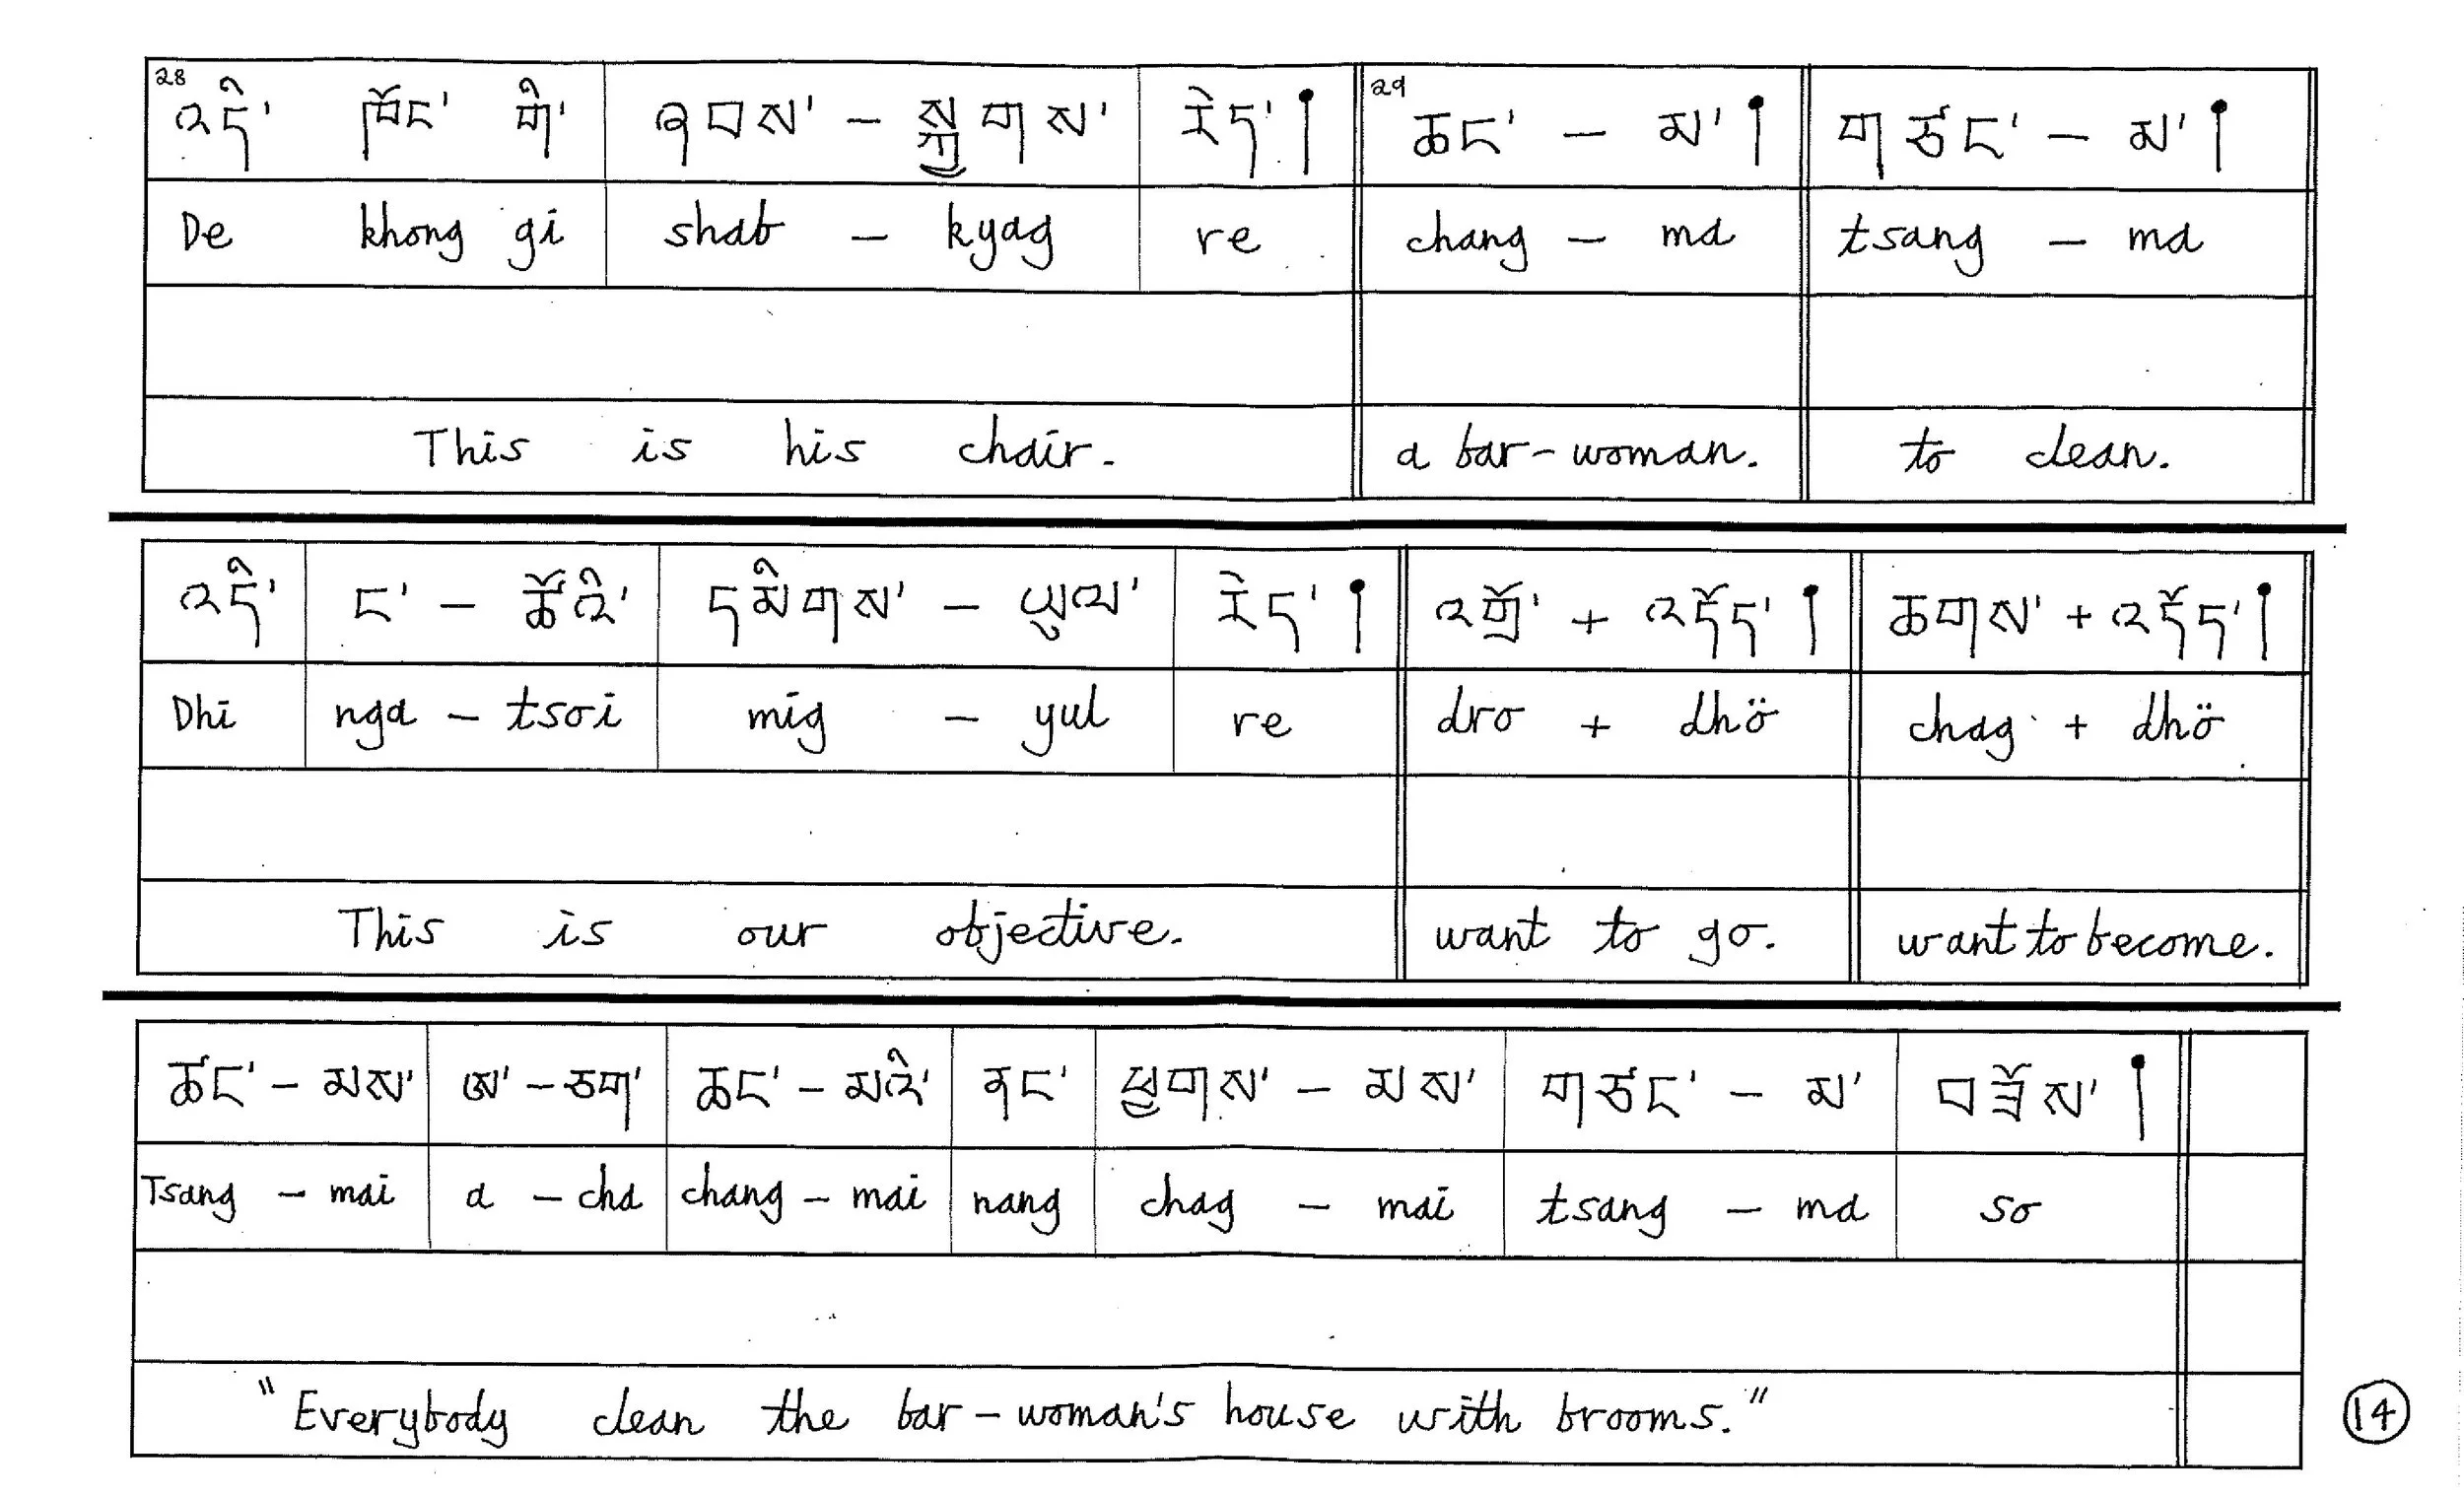 28 འདི་ ཁོང་ གི་ ཞབས་ – སྐྱགས་ རེད་། 29 ཆང་ – མ་། གཙང་ – མ་།
De khong gi shab – kyag re chang – ma tsang – ma
This is his chair. a bar-woman. to clean.
འདི་ ང་ – ཚོའི་ དམིགས་ – ཡུལ་ རེད་། འགྲོ་ + འདོད་། ཆགས་ + འདོད་།
Dhi nga – tsoi mig – yul re dro + dhö chag + dhö
This is our objective. want to go. want to become.
ཚང་ – མས་ ཨ་ – ཅག་ ཆང་ – མའི་ ནང་ ཕྱགས་ – མས་ གཙང་ – མ་ བཟོས་།
Tsang – mai a – cha chang – mai nang chag – mai tsang – ma so
"Everybody clean the bar-woman's house with brooms."
14